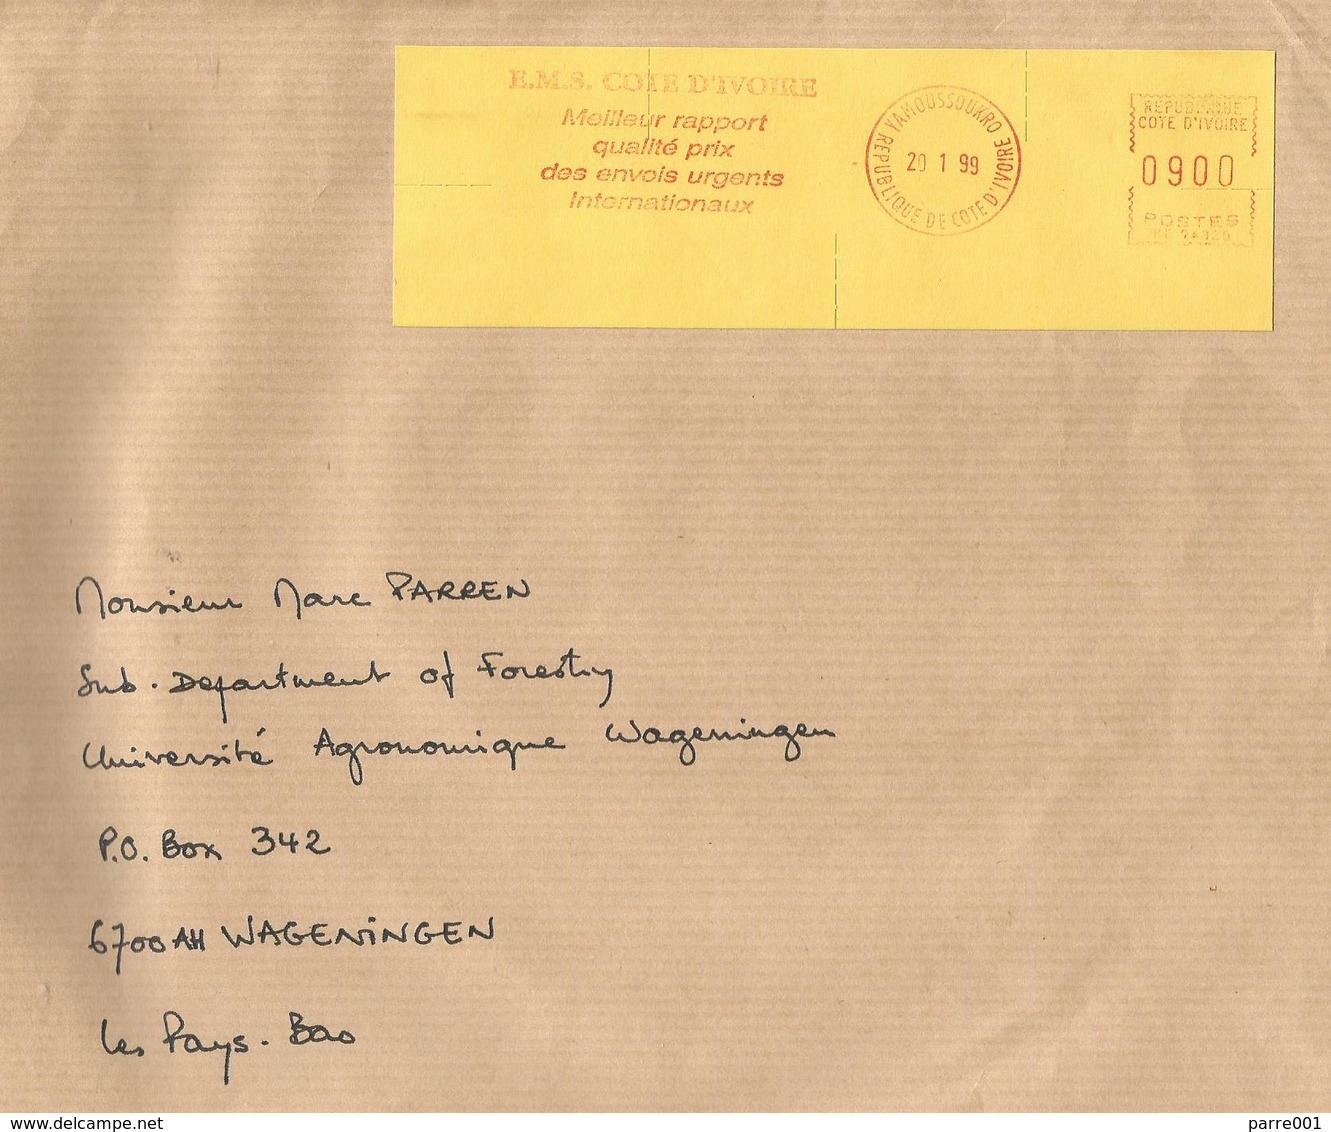 E.M.S. COTE D'IVOIRE
Meilleur rapport
qualité prix
des envois urgents
Internationaux
YAMOUSSOUKRO
REPUBLIQUE DE COTE D'IVOIRE
20 1 99
REPUBLIQUE
COTE D'IVOIRE
0900
POSTES
Monsieur Marc PARREN
Sub. Department of Forestry
Université Agronomique Wageningen
P.O. Box 342
6700 AH WAGENINGEN
Les Pays-Bas
www.delcampe.net
parre001